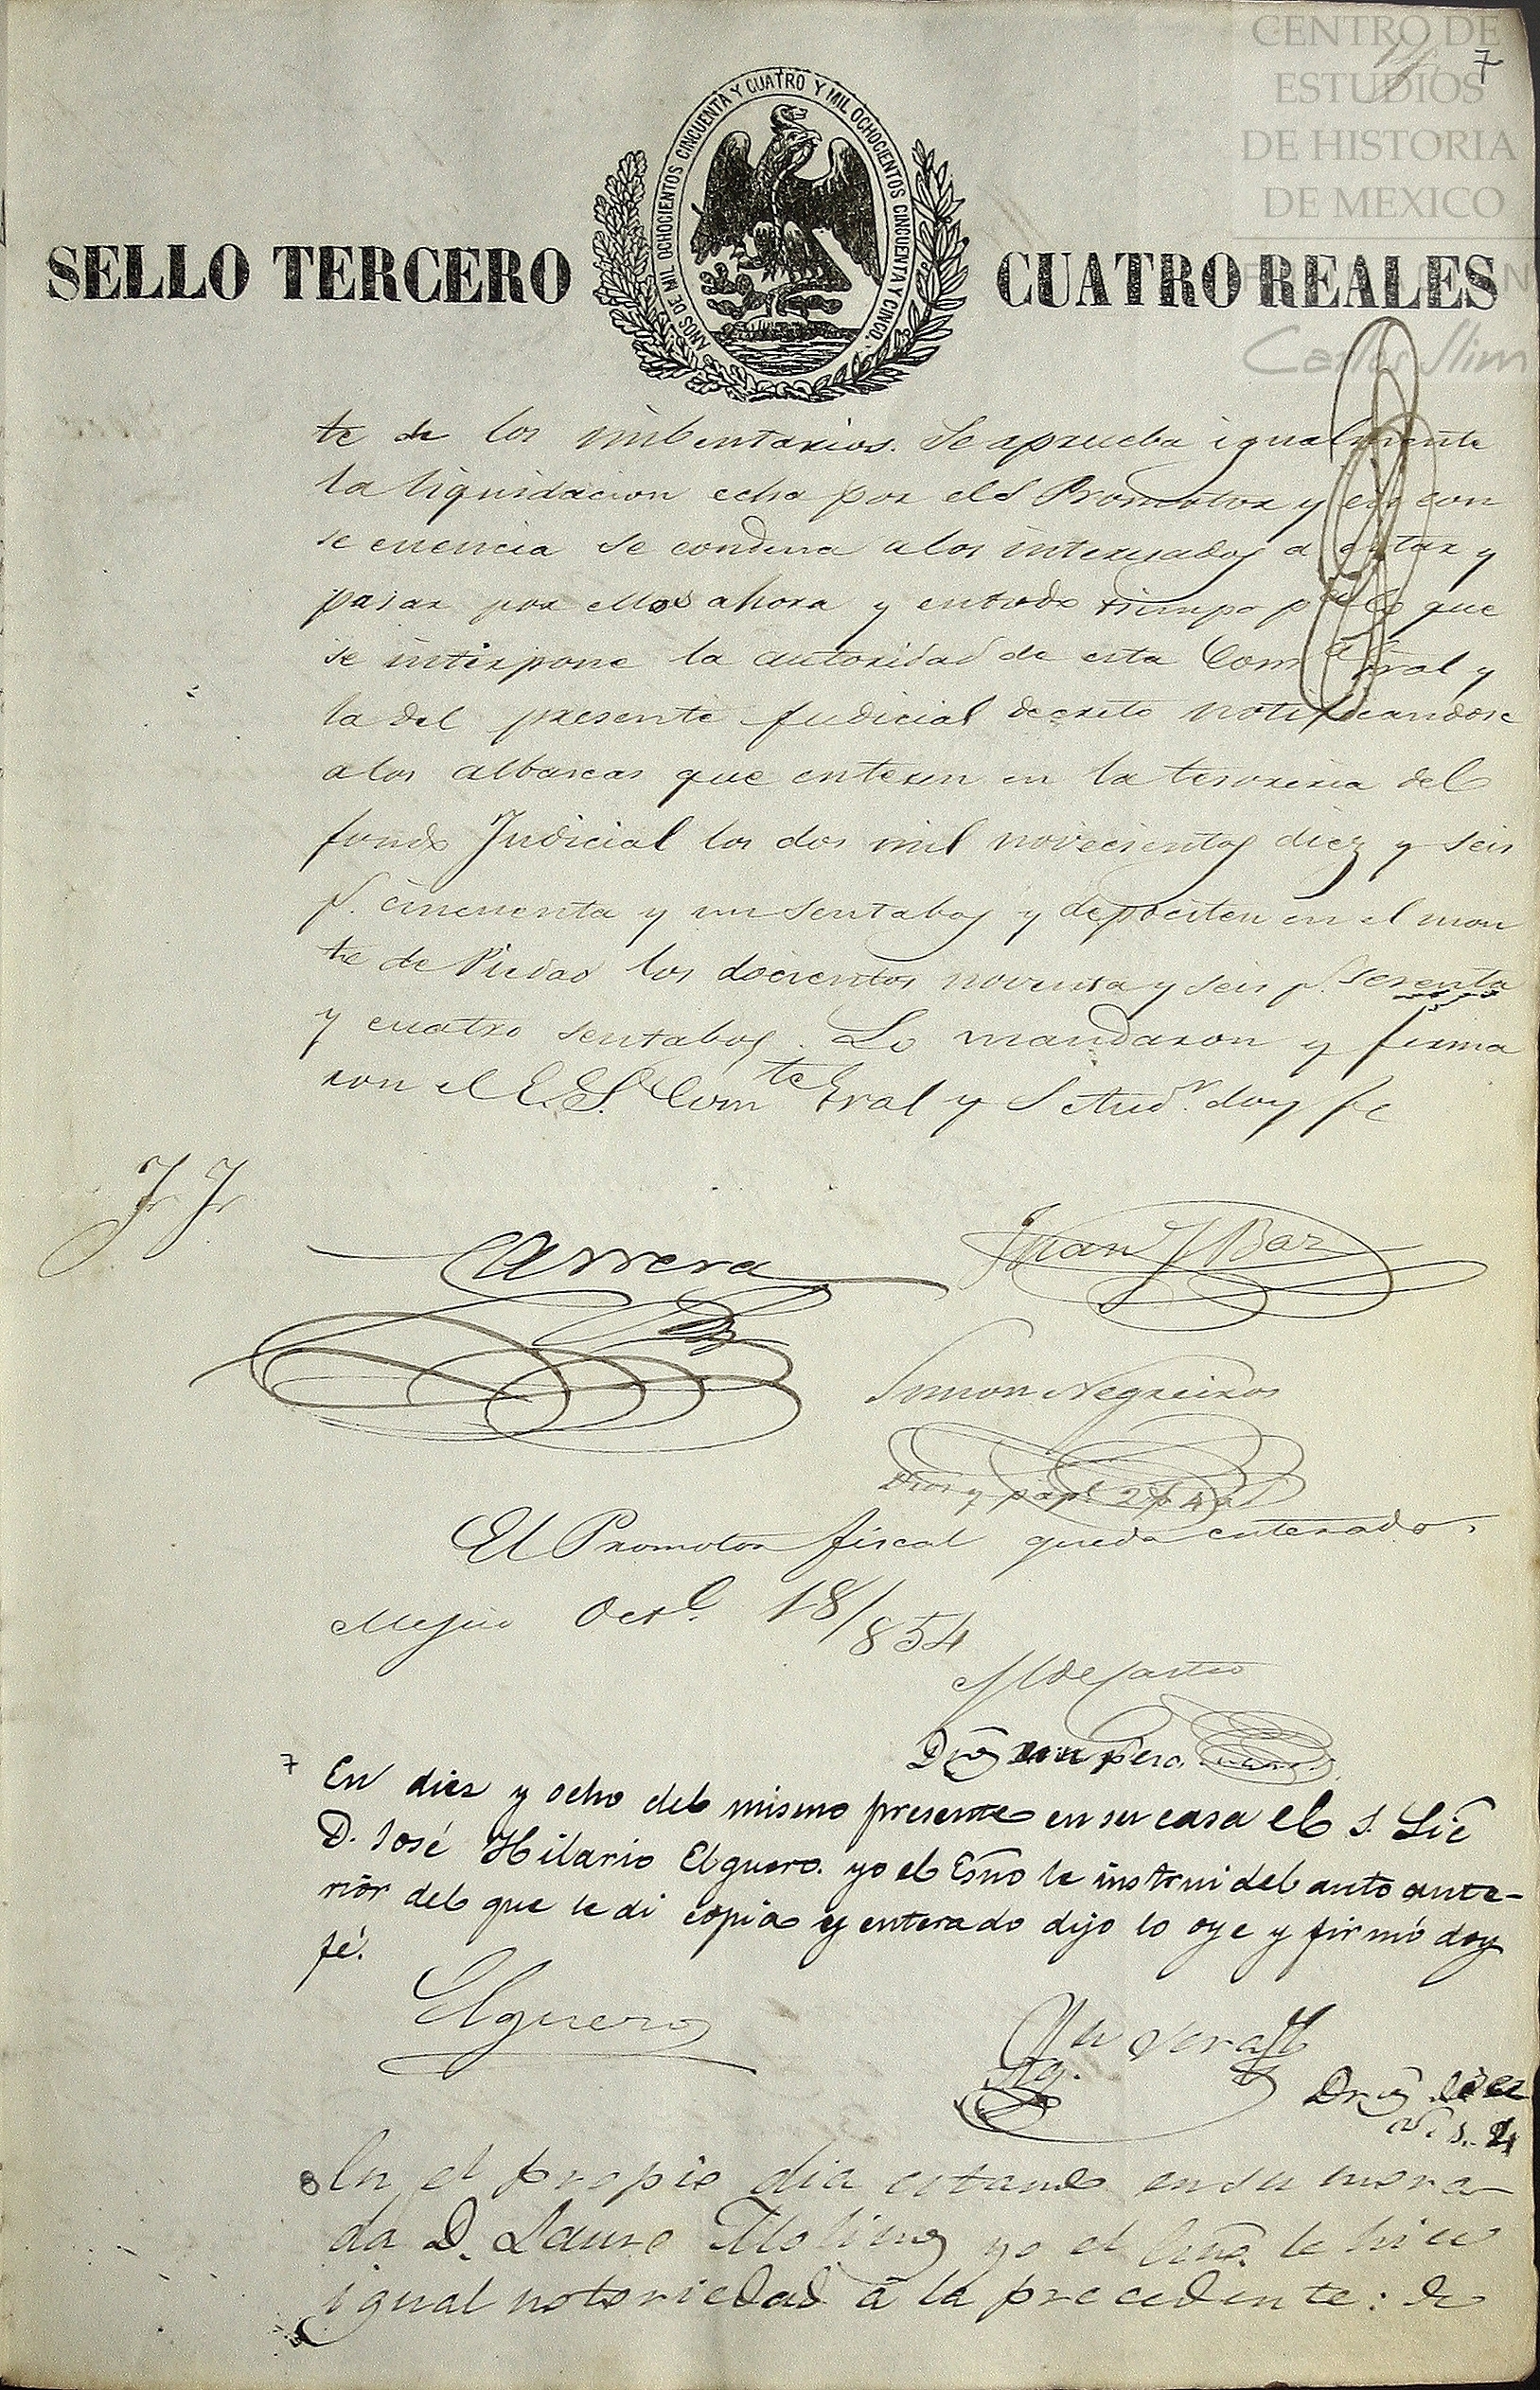 CENTRO DE
ESTUDIOS
DE HISTORIA
DE MEXICO
7
Carlos Slim
AÑOS DE MIL OCHOCIENTOS CINCUENTA Y CUATRO Y MIL OCHOCIENTOS CINCUENTA Y CINCO.
SELLO TERCERO CUATRO REALES
te de los imbentarios. Se aprueba igualmente
la liquidacion echa por el S Promotor y en con
secuencia se condena a los interesados a estar y
pasar por ellos ahora y en todo tiempo pa lo que
se interpone la autoridad de esta Coma Gral y
la del presente judicial decreto notificandose
a los albaceas que enteren en la tesoreria del
fondo Judicial los dos mil novecientos diez y seis
p. cincuenta y un sentabos y depociten en el mon
te de Piedad los docientos noventa y seis p. sesenta
y cuatro sentabos. Lo mandaron y firma
ron el E.S. Comte Gral y S Audr. doy fe
Carrera
Juan J Baz
Simon Negreiros
Dros y papl 2p 4r
El Promotor fiscal queda enterado.
Mejico Octe. 18/854
M de Castro
7 En diez y ocho del mismo presente en su casa el S. Lic
D. José Hilario Elguero. yo el Esno le instrui del auto ante-
rior del que le di copia y enterado dijo lo oye y firmó doy
fé.
Elguero
8 En el propio dia estando en su mora
da D. Lauro Molino yo el Esno. le hice
igual notoriedad á la precedente: de